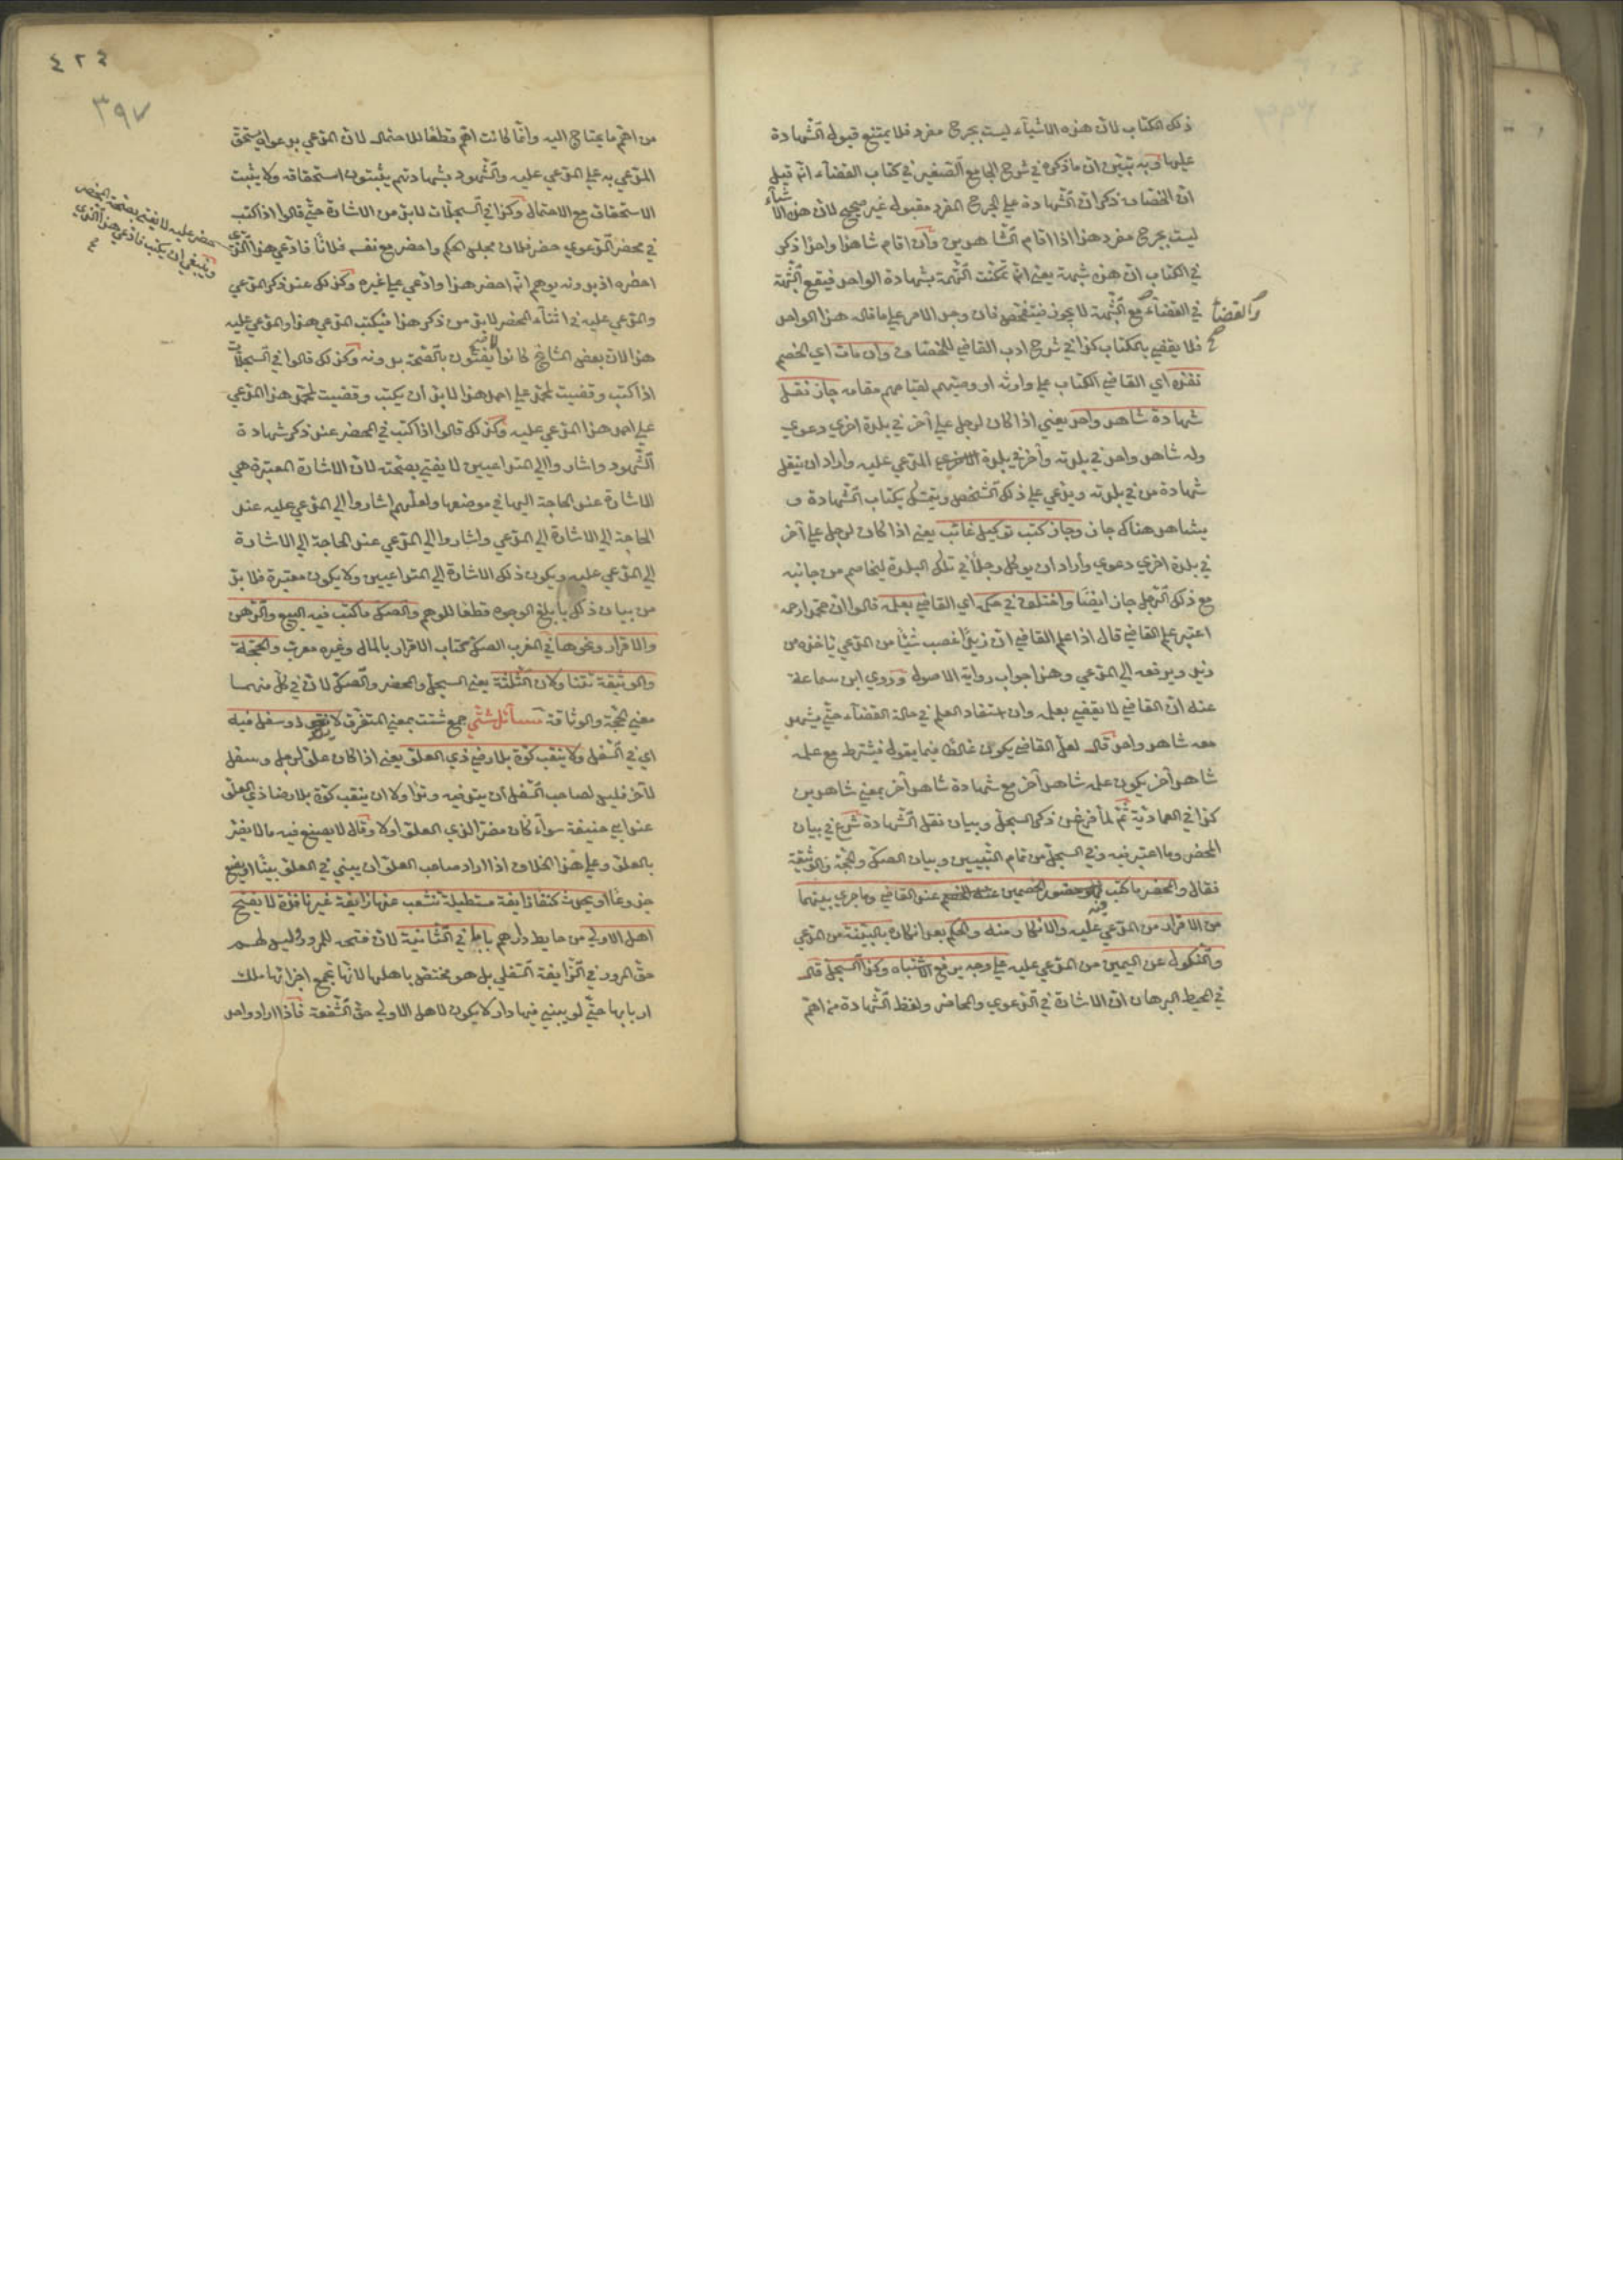 ذلك الكتاب لان هذه الاشياء ليست بجرح مفرد فلا يمتنع قبول الشهادة
عليها وبه تبين ان ما ذكره في شرح الجامع الصغير في كتاب القضاء انه قيل
ان الخصاف ذكر ان الشهادة على الجرح المفرد مقبولة غير صحيح لان هذه الاشياء
ليست بجرح مفرد هذا اذا اقام الشاهدين وان اقام شاهدا واحدا ذكر
في الكتاب ان هذه شبهة يعني انه تمكنت التهمة بشهادة الواحد فيقع الشبهة
في القضاء والقضاء مع الشبهة لا يجوز فيتفحص فان وجد الامر على ما قال هذا الواحد
فلا يقضي بالكتاب كذا في شرح ادب القاضي للخصاف وان مات اي الخصم
نفذه اي القاضي الكتاب على وارثه او وصيه لقيامهم مقامه جاز نقل
شهادة شاهد واحد يعني اذا كان لرجل على آخر في بلدة اخرى دعوى
وله شاهد واحد في بلدته وآخر في بلدة المدعى عليه واراد ان ينقل
شهادة من في بلدته ويدعي على ذلك الشخص ويتمسك بكتاب الشهادة و
بشاهد هناك جاز وجاز كتب توكيل غائب يعني اذا كان لرجل على آخر
في بلدة اخرى دعوى واراد ان يوكل رجلا في تلك البلدة ليخاصم من جانبه
مع ذلك الرجل جاز ايضا واختلف في حكمه اي القاضي بعلمه قالوا ان محمدا رحمه
اعتبر علم القاضي قال اذا علم القاضي ان زيدا غصب شيئا من المدعي ياخذه من
زيد ويدفعه الى المدعي وهذا جواب رواية الاصول وروى ابن سماعة
عنه ان القاضي لا يقضي بعلمه وان استفاد العلم في حالة القضاء حتى يشهد
معه شاهد واحد قال لعل القاضي يكون غالطا فيما يقول فيشترط مع علمه
شاهد آخر يكون علمه شاهد آخر مع شهادة شاهد آخر بمعنى شاهدين
كذا في العمادية ثم لما فرغ من ذكر السجل وبيان نقل الشهادة شرع في بيان
المحضر وما اعتبر فيه وفي السجل من تمام التبيين وبيان الصك والحجة والوثيقة
فقال والمحضر ما كتب فيه حضور الخصمين عند القاضي وما جرى بينهما
من الاقرار من المدعى عليه والانكار منه والحكم بعد انكاره بالبينة من المدعي
والنكول عن اليمين من المدعى عليه على وجه يرفع الاشتباه وكذا السجل قال
في المحيط البرهان ان الاشارة في الدعوى والمحاضر ولفظ الشهادة من اهم
٤٢٤
٣٩٧
من اهم ما يحتاج اليه وانما كانت اهم قطعا للاحتمال لان المدعي بدعواه يستحق
المدعى به على المدعى عليه والشهود بشهادتهم يثبتون استحقاقه ولا يثبت
الاستحقاق مع الاحتمال وكذا في السجلات لا بد من الاشارة حتى قالوا اذا كتب
في محضر الدعوى حضر فلان مجلس الحكم واحضر مع نفسه فلانا فادعى هذا الذي
حضر عليه لا يفتى بصحة المحضر
وينبغي ان يكتب فادعى هذا الذي
احضره اذ بدونه يوهم انه احضر هذا وادعى على غيره وكذلك عند ذكر المدعي
والمدعى عليه في اثناء المحضر لا بد من ذكر هذا فيكتب المدعي هذا والمدعى عليه
هذا لان بعض المشايخ كانوا لا يفتون بالصحة بدونه وكذلك قالوا في السجلات
اذا كتب وقضيت لمحمد على احمد هذا لا بد ان يكتب وقضيت لمحمد هذا المدعي
على احمد هذا المدعى عليه وكذلك قالوا اذا كتب في المحضر عند ذكر شهادة
الشهود واشاروا الى المتداعيين لا يفتى بصحته لان الاشارة المعتبرة هي
الاشارة عند الحاجة اليها في موضعها ولعلهم اشاروا الى المدعى عليه عند
الحاجة الى الاشارة الى المدعي واشاروا الى المدعي عند الحاجة الى الاشارة
الى المدعى عليه ويكون ذلك الاشارة الى المتداعيين ولا يكون معتبرة فلا بد
من بيان ذلك بابلغ الوجوه قطعا للوهم والصك ما كتب فيه البيع والرهن
والاقرار ونحوها في المغرب الصك كتاب الاقرار بالمال وغيره معرب والحجة
والوثيقة تتناولان الثلثة يعني السجل والمحضر والصك لان في كل منهما
معنى الحجة والوثاقة مسائل شتى جمع شتيت بمعنى المتفرق لا يتد ذو سفل فيه
اي في السفل ولا ينقب كوة بلا رضى ذي العلو يعني اذا كان علو لرجل وسفل
لآخر فليس لصاحب السفل ان يتد فيه وتدا ولا ان ينقب كوة بلا رضا ذي العلو
عند ابي حنيفة سواء كان مضرا لذي العلو اولا وقالا لا يصنع فيه ما لا يضر
بالعلو وعلى هذا الخلاف اذا اراد صاحب العلو ان يبني في العلو بيتا او يضع
جذوعا او يحدث كنيفا زايغة مستطيلة تنشعب عنها زايغة غير نافذة لا يفتح
اهل الاولى من حايط دارهم بابا في الثانية لان فتحه للمرور وليس لهم
حق المرور في الزايغة السفلى بل هو مختص باهلها لانها بجمع اجزائها ملك
اربابها حتى لو بيع فيها دار لا يكون لاهل الاولى حق الشفعة فاذا اراد واحد